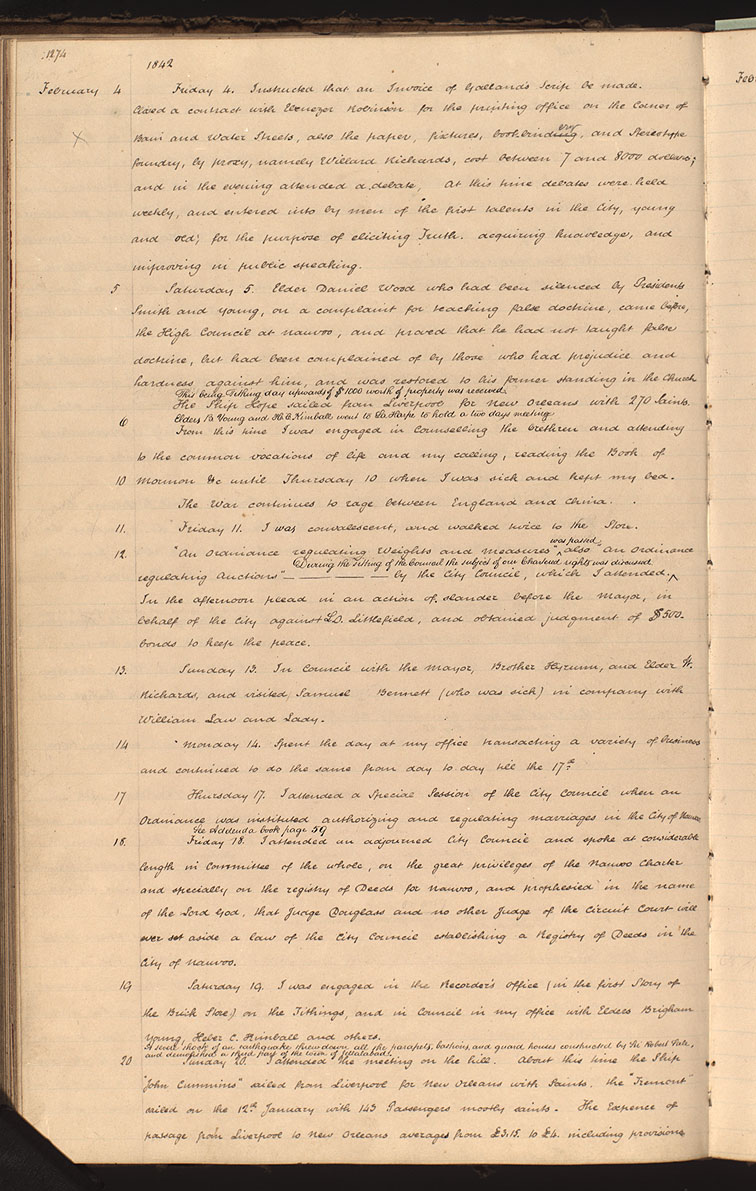 1274
1842
Feb
February 4 Friday 4. Instructed that an Invoice of Galland's Scrip be made.
Closed a contract with Ebenezer Robinson for the printing office on the Corner of
Bain and Water Streets, also the paper, fixtures, bookbindery, and Stereotype
foundry, by proxy, namely Willard Richards, cost between 7 and 8000 dollars;
and in the evening attended a debate, At this time debates were held
weekly, and entered into by men of the first talents in the City, young
and old, for the purpose of eliciting Truth. acquiring knowledge, and
improving in public speaking.
5 Saturday 5. Elder Daniel Wood who had been silenced by Presidents
Smith and Young, on a complaint for teaching false doctrine, came before,
the High Council at Nauvoo, and proved that he had not taught false
doctrine, but had been complained of by those who had prejudice and
hardness against him, and was restored to his former standing in the Church
This being Tithing day upwards of $1000 worth of property was received.
The Ship Hope sailed from Liverpool for New Orleans with 270 Saints.
6 Elders B. Young and H. C. Kimball went to La Harpe to hold a two days meeting
From this time I was engaged in Counselling the brethren and attending
to the common vocations of life and my calling, reading the Book of
10 Mormon &c until Thursday 10 when I was sick and kept my bed.
The War continues to rage between England and China.
11. Friday 11. I was convalescent, and walked twice to the Store.
was passed
12. "An Ordinance regulating Weights and measures" also "an Ordinance
During the sitting of the Council the subject of our Chartered rights was discussed
regulating Auctions" by the City Council, which I attended.
In the afternoon plead in an action of slander before the Mayor, in
behalf of the City against L. D. Littlefield, and obtained judgment of $500.
bonds to keep the peace.
13. Sunday 13. In Council with the Mayor, Brother Hyrum, and Elder W.
Richards, and visited Samuel Bennett (who was sick) in company with
William Law and Lady.
14 Monday 14. Spent the day at my office transacting a variety of business
and continued to do the same from day to day till the 17th
17 Thursday 17. I attended a Special Session of the City Council when an
Ordinance was instituted authorizing and regulating marriages in the City of Nauvoo
See Addenda book page 59
18. Friday 18. I attended an adjourned City Council and spoke at considerable
length in Committee of the whole, on the great privileges of the Nauvoo Charter
and specially on the registry of Deeds for Nauvoo, and prophesied in the name
of the Lord God, that Judge Douglass and no other Judge of the Circuit Court will
ever set aside a law of the City Council establishing a Registry of Deeds in the
City of Nauvoo.
19 Saturday 19. I was engaged in the Recorder's office (in the first Story of
the Brick Store) on the Tithings, and in Council in my office with Elders Brigham
Young, Heber C. Kimball and others.
A severe shock of an earthquake threw down all the parapets, bastions, and guard houses constructed by Sir Robert Sale,
and demolished a third part of the town of Jellalabad.
20 Sunday 20. I attended the meeting on the hill. About this time the Ship
"John Cummins" sailed from Liverpool for New Orleans with Saints. the "Tremont"
sailed on the 12th January with 143 Passengers mostly saints. The Expence of
passage from Liverpool to New Orleans averages from £3.15. to £4. including provisions